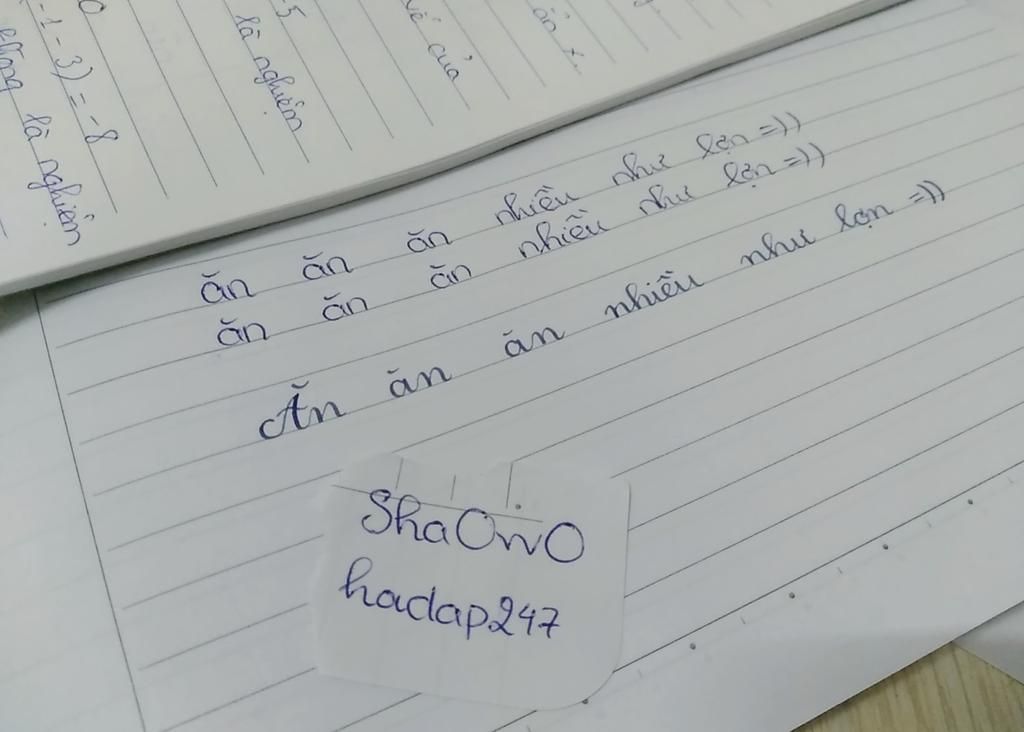 -1 - 3) = -8
không là nghiệm
-5
là nghiệm
vế của
ẩn x.
ăn ăn ăn nhiều như lợn =))
ăn ăn ăn nhiều như lợn =))
Ăn ăn ăn nhiều như lợn =))
ShaOwO
hadap247